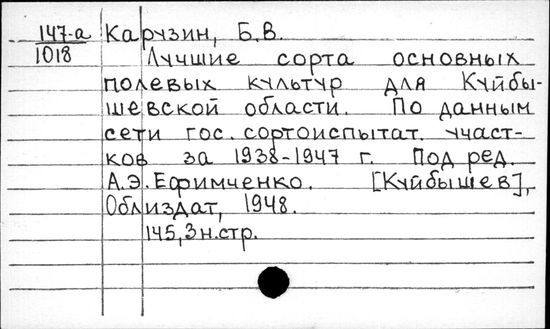 147-а Карузин, Б.В.
1018
Лучшие сорта основных
полевых культур для Куйбы-
шевской области. По данным
сети гос. сортоиспытат. участ-
ков за 1938-1947 г. Под ред.
А.Э. Ефимченко. [Куйбышев],
Облиздат, 1948.
145,3н.стр.